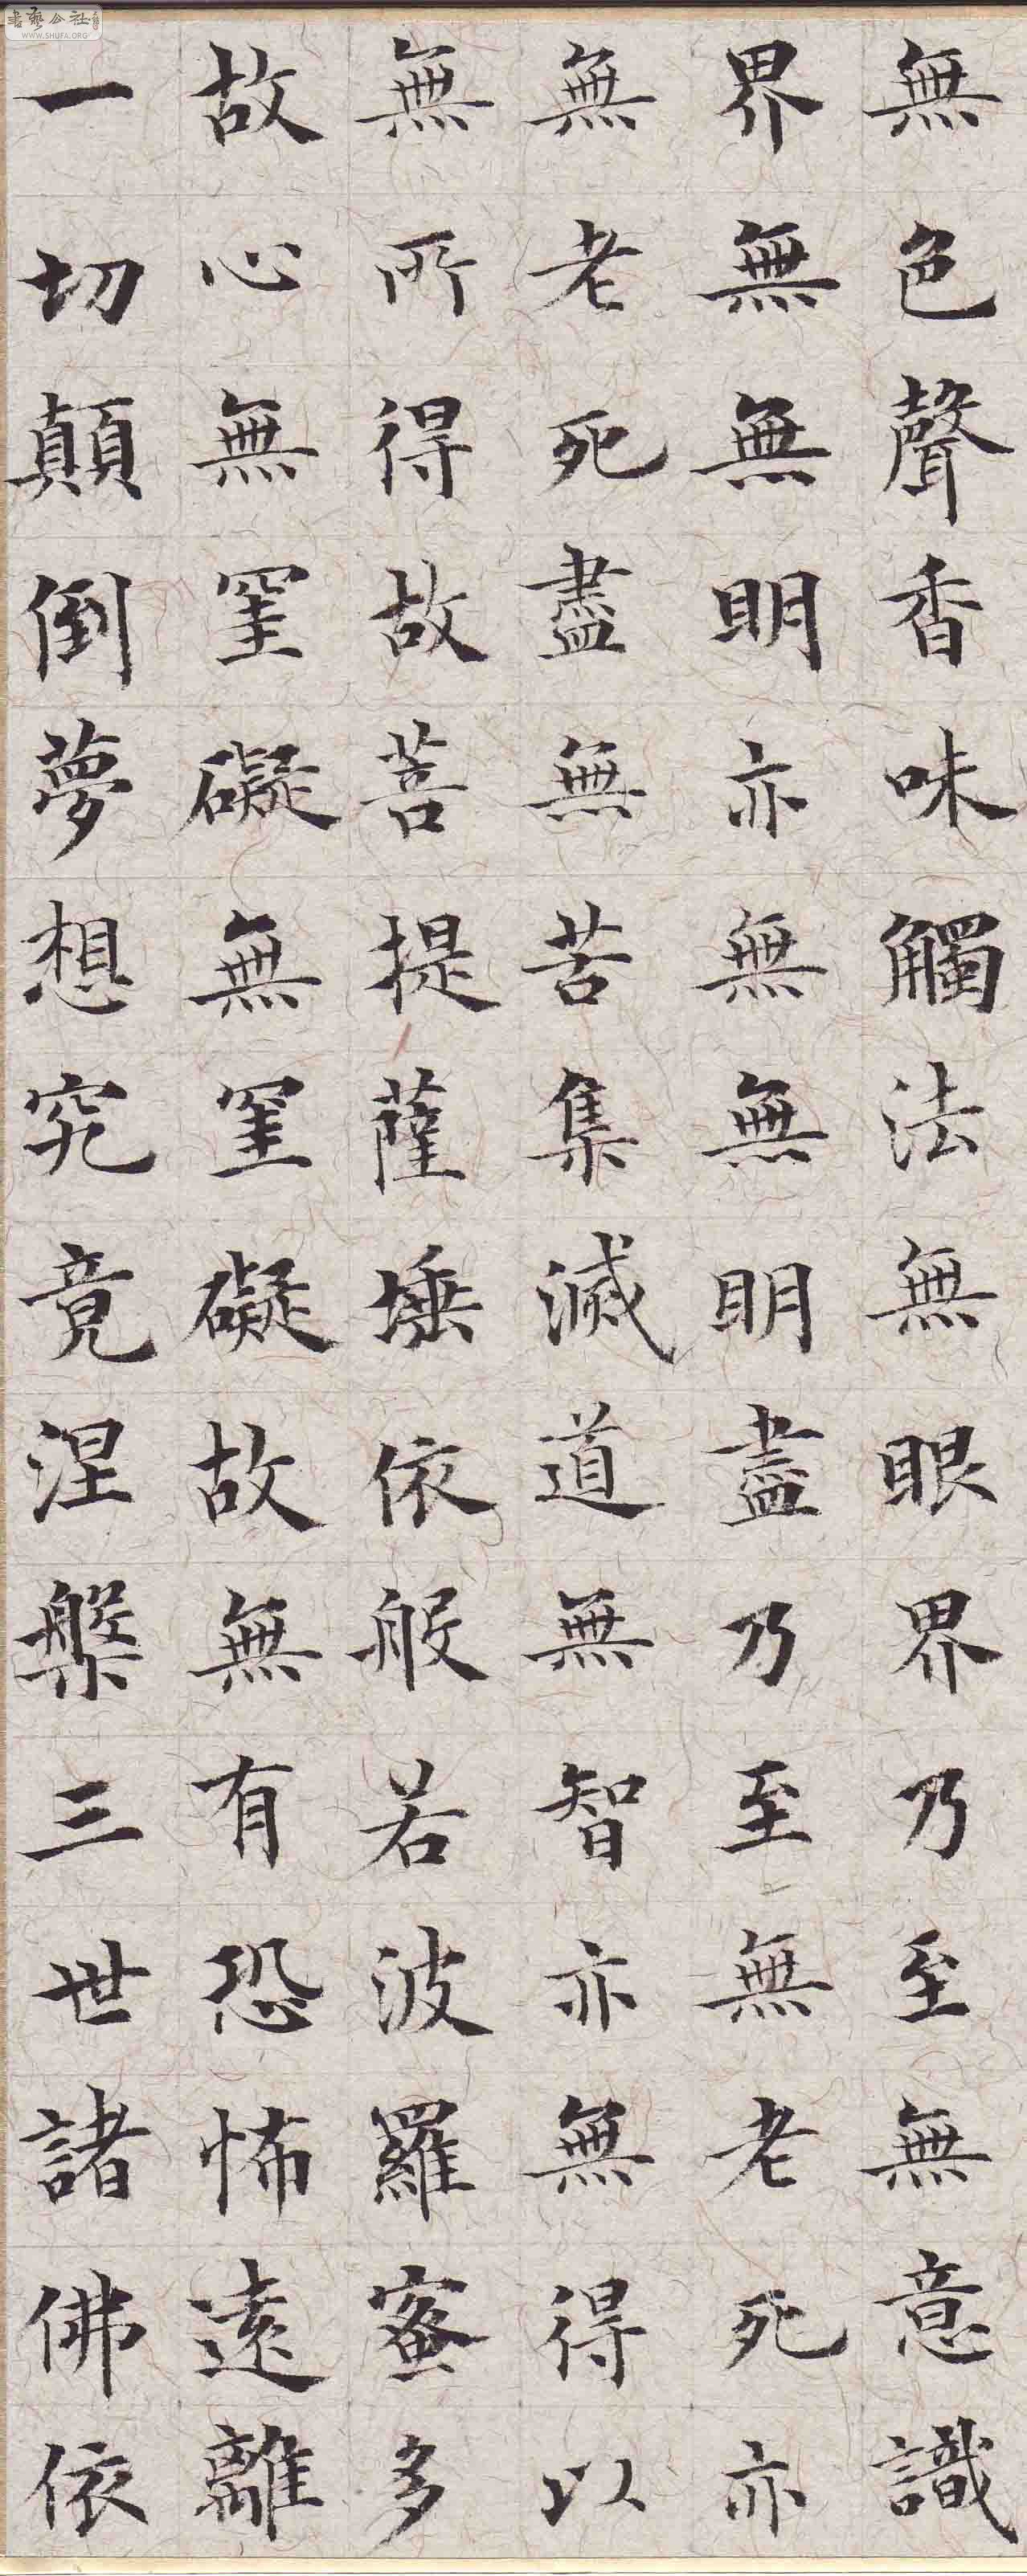 無色聲香味觸法無眼界乃至無意識
界無無明亦無無明盡乃至無老死亦
無老死盡無苦集滅道無智亦無得以
無所得故菩提薩埵依般若波羅蜜多
故心無罣礙無罣礙故無有恐怖遠離
一切顛倒夢想究竟涅槃三世諸佛依
书艺公社
WWW.SHUFA.ORG